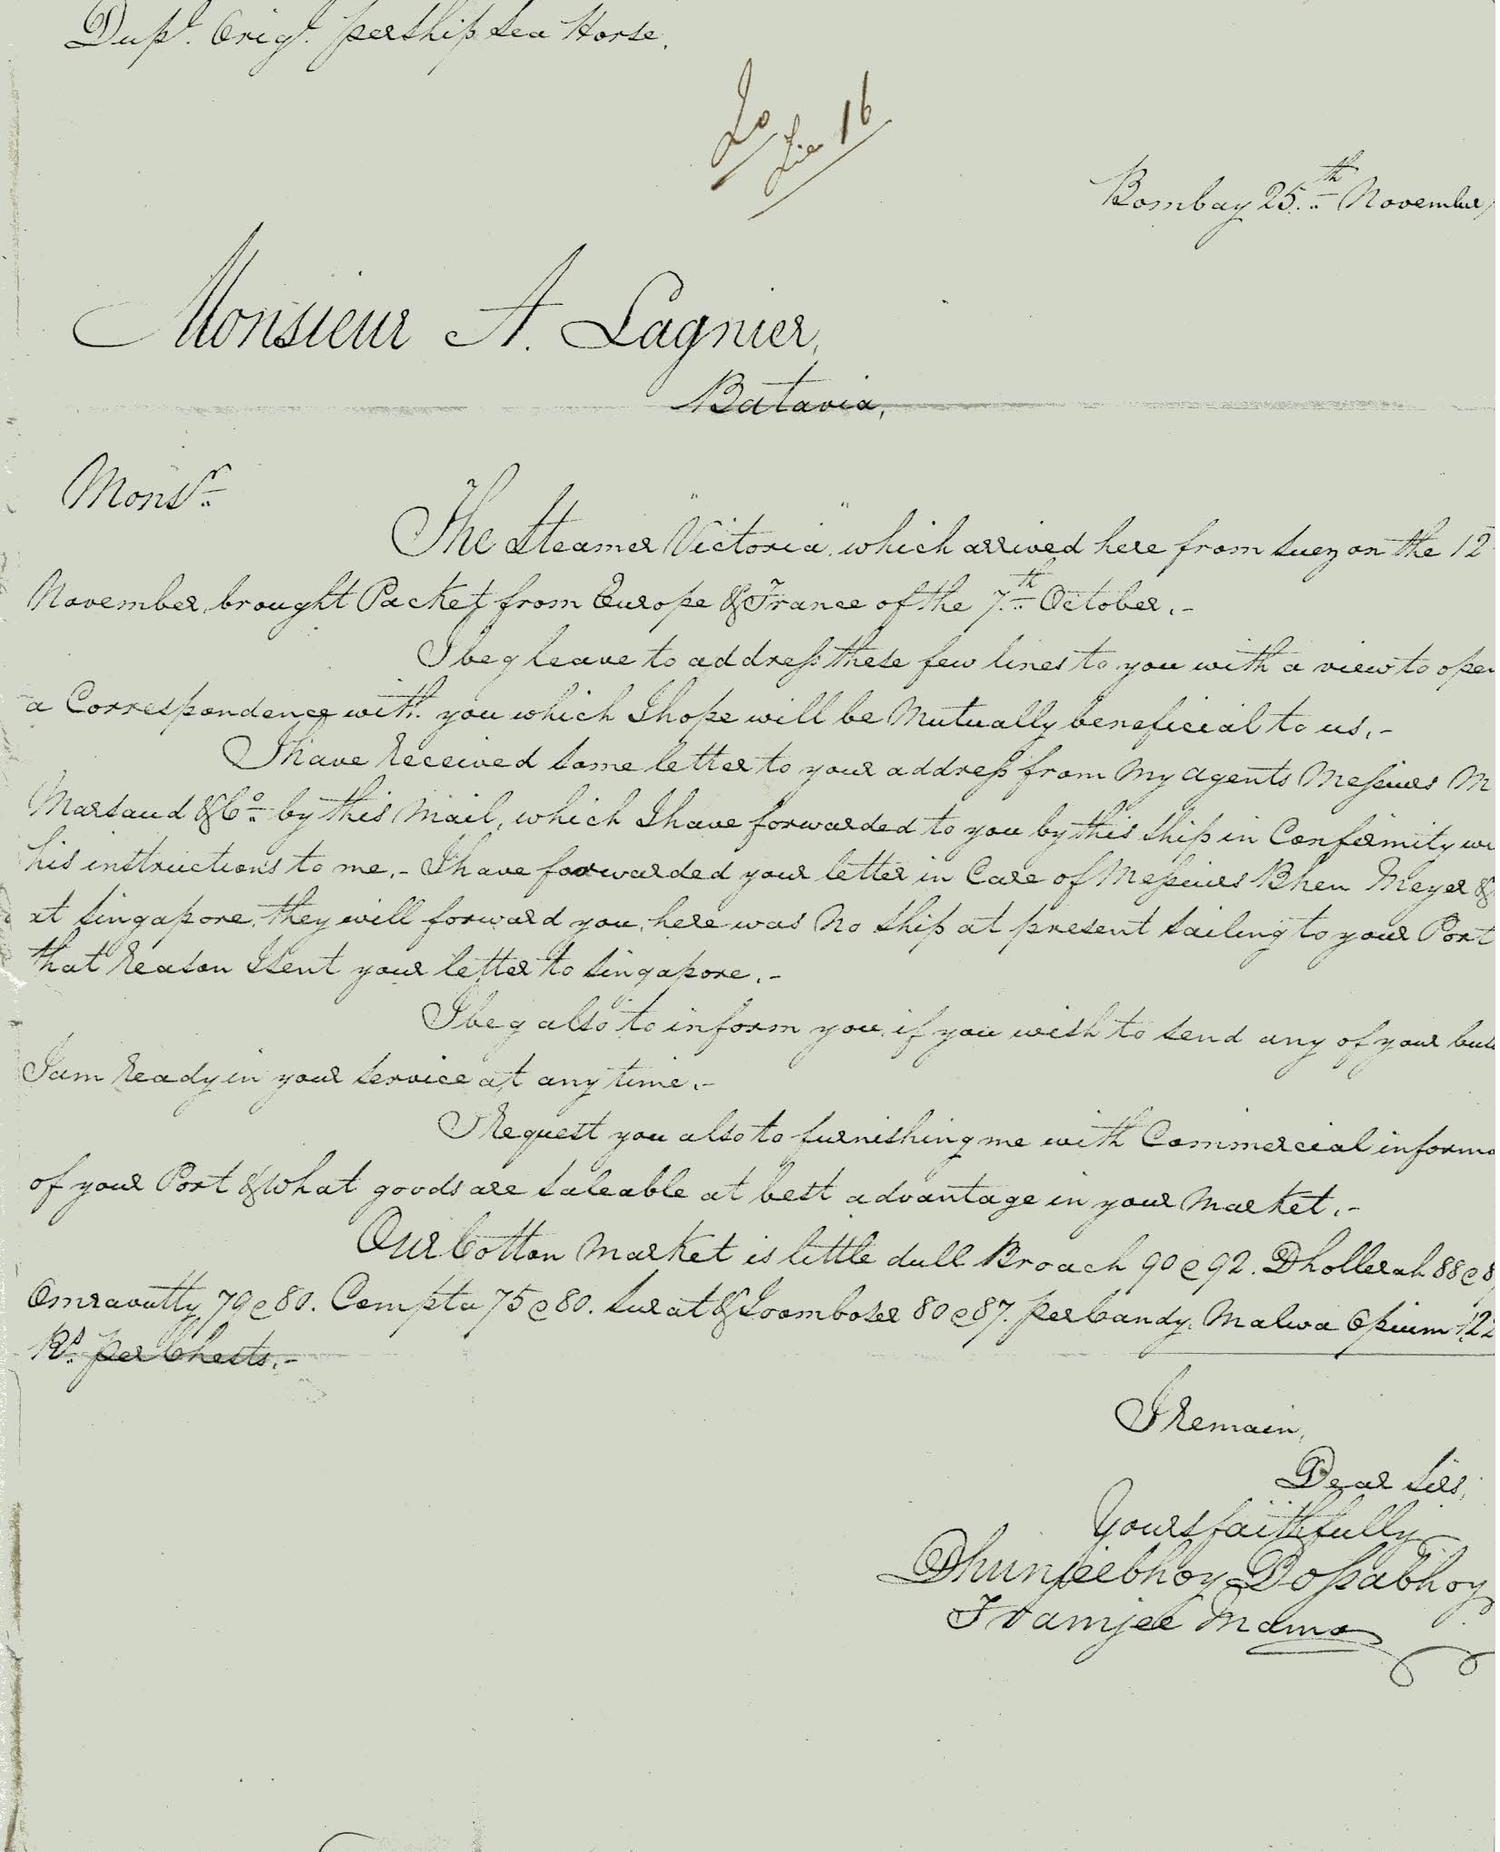 Dupt. Origl. per Ship Sea Horse.
16
Bombay 25th November
Monsieur A. Lagnier,
Batavia,
Monsr.
The Steamer "Victoria" which arrived here from Suez on the 12
November, brought Packet from Europe & France of the 7th October.-
I beg leave to address these few lines to you with a view to open
a Correspondence with you which I hope will be Mutually beneficial to us.-
I have Received some letter to your address from My agents Messieurs M
Marsaud & Co. by this Mail, which I have forwarded to you by this Ship in Confirmity wi
his instructions to me.- I have forwarded your letter in Care of Messieurs Bhen Meyer &
at Singapore, they will forward you, here was No Ship at present sailing to your Port
that Reason I sent your letter to Singapore.-
I beg also to inform you if you wish to send any of your busi
I am Ready in your service at any time.-
I Request you also to furnishing me with Commercial informa
of your Port & What goods are saleable at best advantage in your Market.-
Our Cotton Market is little dull Broach 90@92. Dhollerah 88@8
Omravutty 79@80. Compta 75@80. Surat & Joomboser 80@87. per Candy. Malwa Opium 122
Rs. per Chests.-
I Remain,
Dear Sirs,
Yours faithfully
Dhunjeebhoy Dossabhoy
Framjee Mama